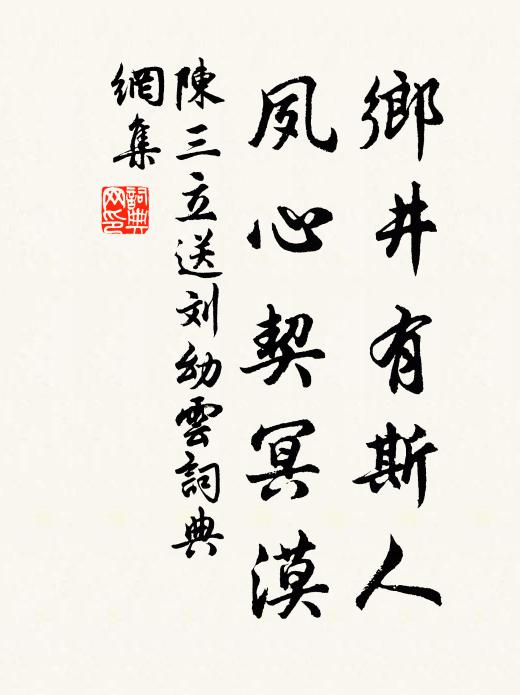 鄉井有斯人
夙心契冥漠
陳三立送刘幼雲詞典
網集
詞典
网印